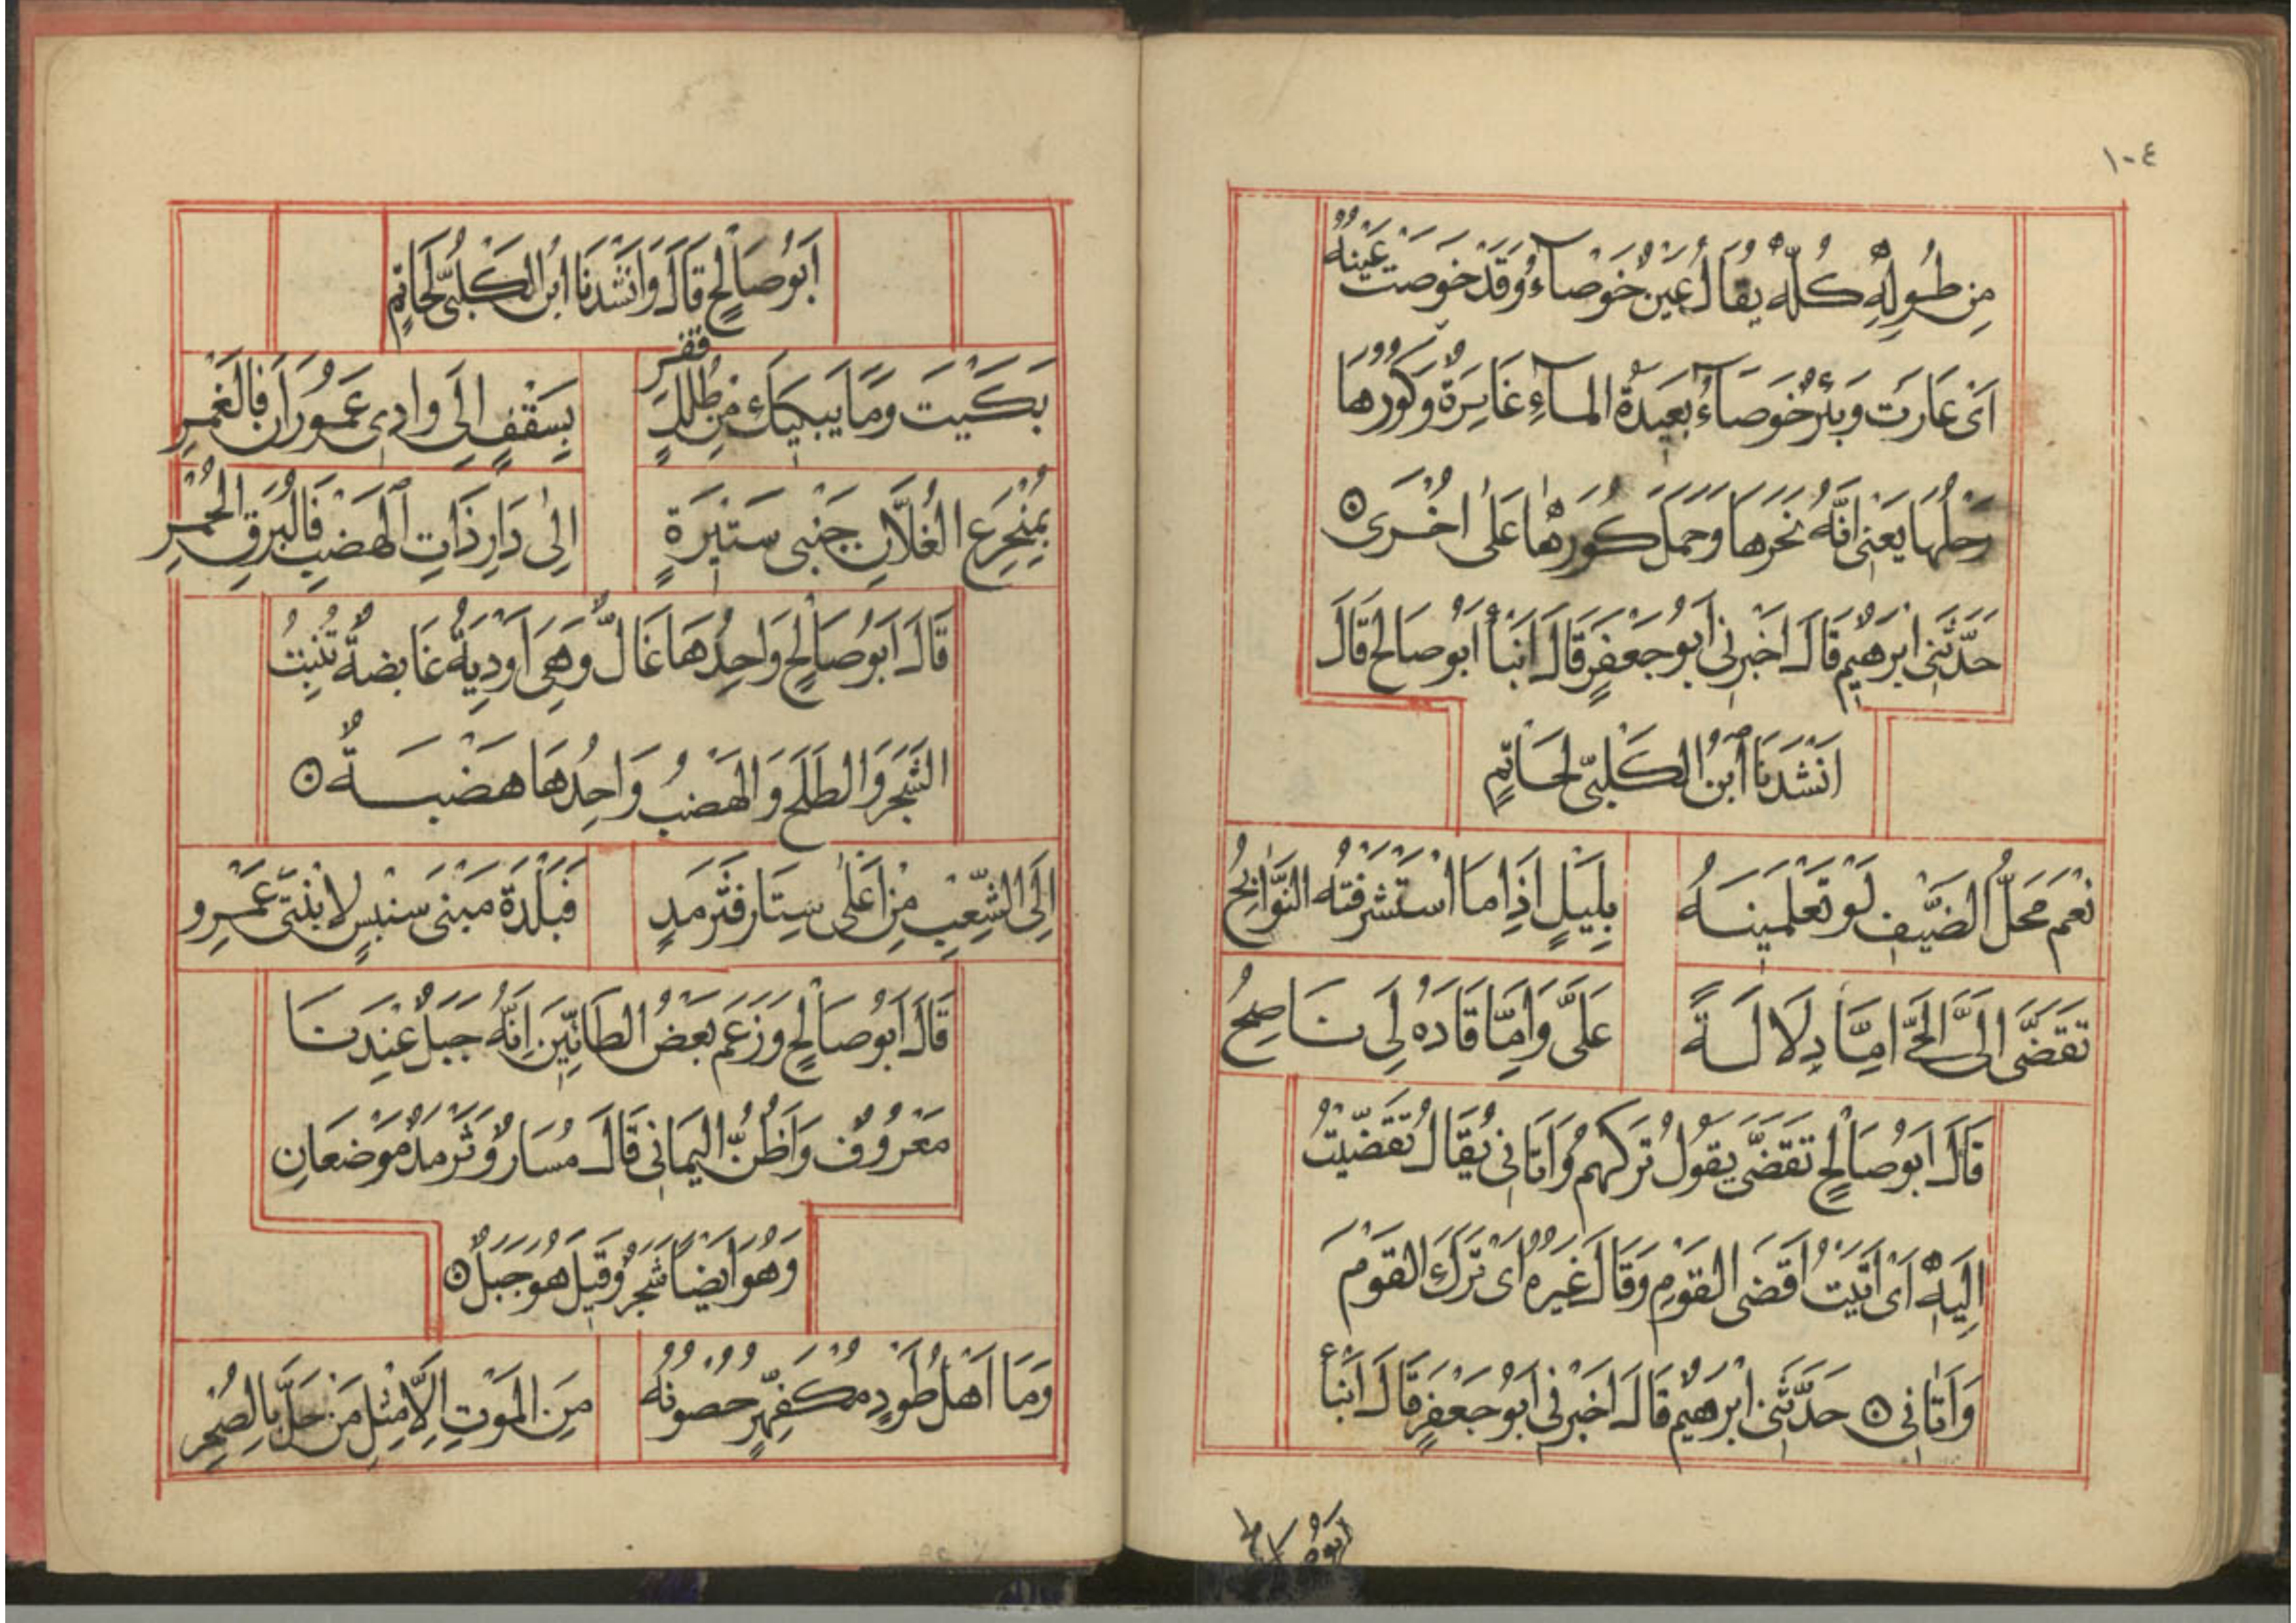 ١٠٤
مِن طُولِهِ كُلِّهِ يُقَالُ عَيْنٌ خَوْصَآءُ وَقَدْ خَوِصَتْ عَيْنُهُ
اَىْ غَارَتْ وَبِئْرٌ خَوْصَآءُ بَعِيدَةُ المآءِ غَايِرَةٌ وَكُورُهَا
رَحْلُهَا يَعْنِى اَنَّهُ نَحَرَهَا وَحَمَلَ كُورَهَا عَلَى اُخْرَى ۞
حَدَّثَنِى ابْرَهِيمُ قَالَ اَخْبَرَنِى اَبُو جَعْفَرٍ قَالَ اَنْبَأَ اَبُو صَالِحٍ قَالَ
اَنْشَدَنَا ابْنُ الْكَلْبِىِّ لِحَاتِمٍ
نِعْمَ مَحَلُّ الضَّيْفِ لَوْ تَعْلَمِينَهُ بِلَيْلٍ اِذَا مَا اسْتَشْرَفَتْهُ النَّوَابِحُ
تَقَضَّى اِلَىَّ الْحَىُّ اِمَّا دِلَالَةً عَلَىَّ وَاِمَّا قَادَهُ لِى نَاصِحُ
قَالَ اَبُو صَالِحٍ تَقَضَّى يَقُولُ تَرَكَهُم وَاَتَانِى يُقَالُ تَقَضَّيْتُ
اِلَيْهِ اَىْ اَتَيْتُ اَقْضَى الْقَوْمِ وَقَالَ غَيْرُهُ اَىْ تَرَكَ الْقَوْمَ
وَاَتَانِى ۞ حَدَّثَنِى ابْرَهِيمُ قَالَ اَخْبَرَنِى اَبُو جَعْفَرٍ قَالَ اَنْبَأَ
اَبُو صَالِحٍ
اَبُو صَالِحٍ قَالَ وَاَنْشَدَنَا ابْنُ الْكَلْبِىِّ لِحَاتِمٍ
بَكَيْتَ وَمَا يُبْكِيكَ مِن طَلَلٍ قَفْرِ بِسَقْفٍ اِلَى وَادِى عَمُورَانَ فَالْغَمْرِ
بِمُنْجَرَعِ الْغُلَّانِ جَنْبَى سَتِيرَةٍ اِلَى دَارِ ذَاتِ الْهَضْبِ فَالْبُرَقِ الْحُمْرِ
قَالَ اَبُو صَالِحٍ وَاحِدُهَا غَالٌّ وَهِىَ اَوْدِيَةٌ غَامِضَةٌ تُنْبِتُ
الشَّجَرَ وَالطَّلْحَ وَالْهَضْبُ وَاحِدُهَا هَضْبَةٌ ۞
اِلَى الشِّعْبِ مِنْ اَعْلَى سِتَارٍ فَثَرْمَدٍ فَبَلْدَةَ مَبْنَى سِنْبِسٍ لِابْنَتَىْ عَمْرِو
قَالَ اَبُو صَالِحٍ وَزَعَمَ بَعْضُ الطَّائِيِّينَ اِنَّهُ جَبَلٌ عِنْدَنَا
مَعْرُوفٌ وَاَظُنُّ الْيَمَانِى قَالَ مُسَارٌ وَثَرْمَدٌ مَوْضِعَانِ
وَهُوَ اَيْضًا شَجَرٌ وَقِيلَ هُوَ جَبَلٌ ۞
وَمَا اَهْلُ طَوْدٍ مُكْفَهِرٍّ حُصُونُهُ مِنَ الْمَوْتِ اِلَّا مِثْلُ مَنْ حَلَّ بِالصُّحْرِ